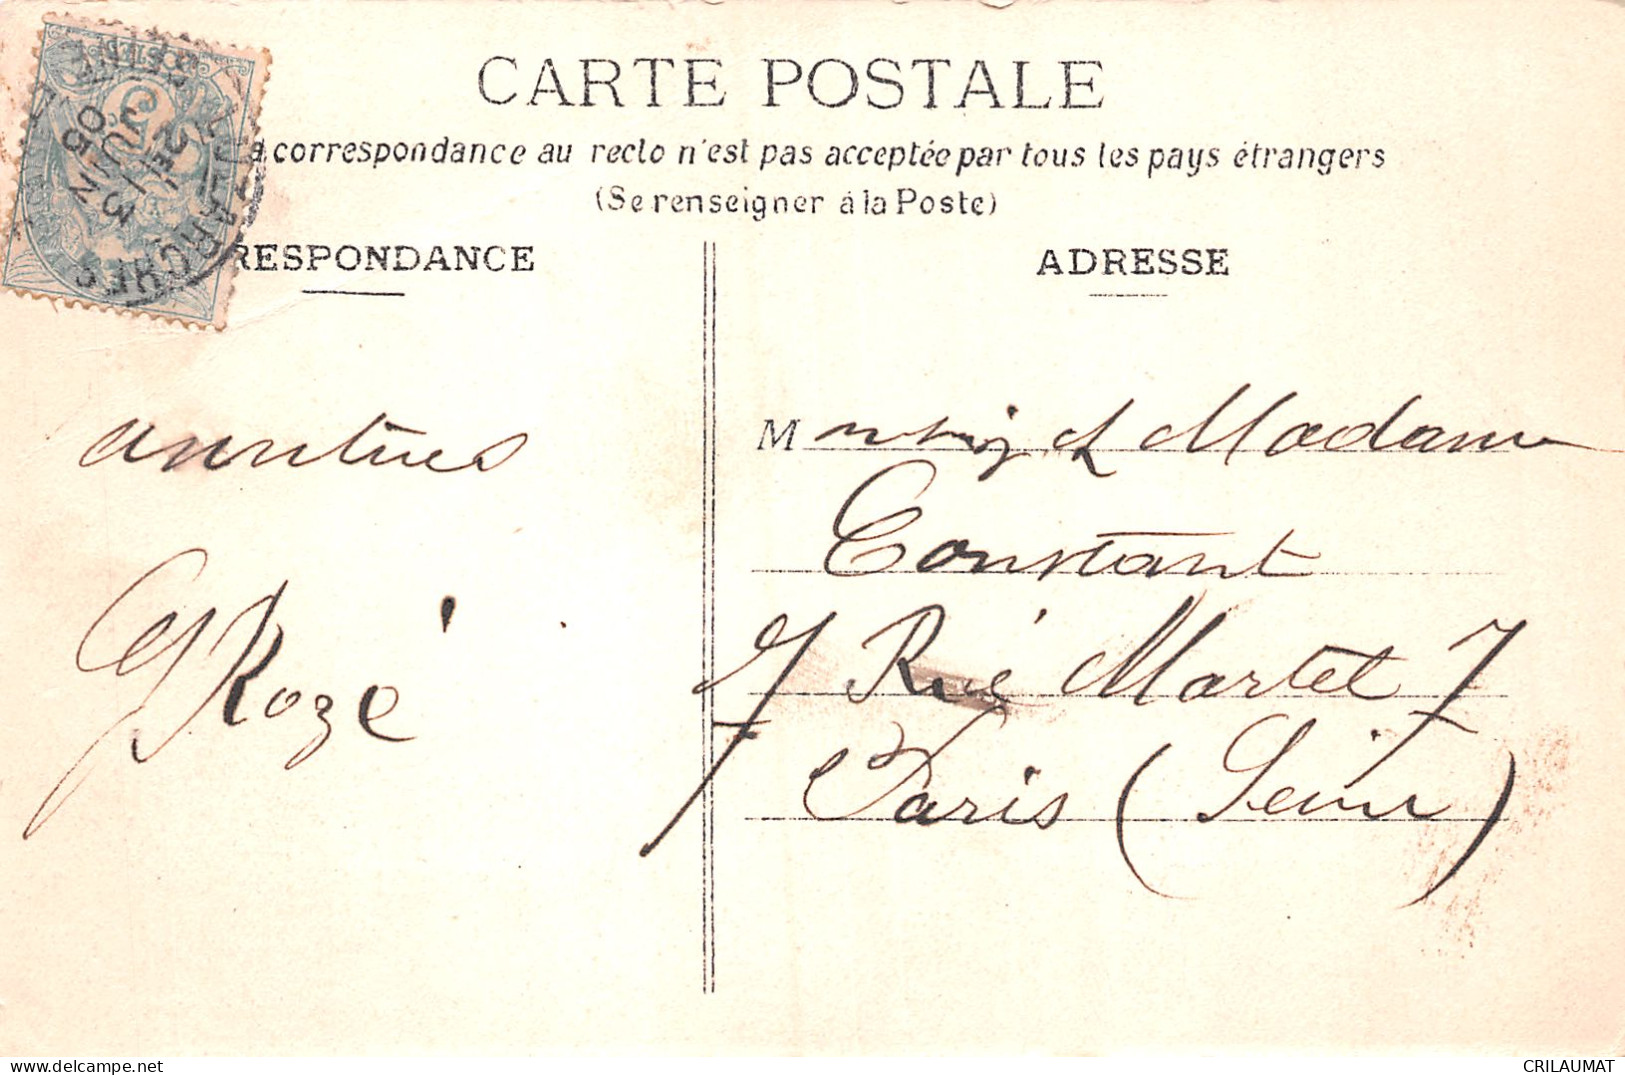 CARTE POSTALE
a correspondance au recto n'est pas acceptée par tous les pays étrangers
(Se renseigner à la Poste)
RESPONDANCE
ADRESSE
LUZARCHES
2E / 13
JUIN
05
amitiés
G Rozé
Monsieur et Madame
Constant
7 Rue Martel 7
Paris (Seine)
CRILAUMAT